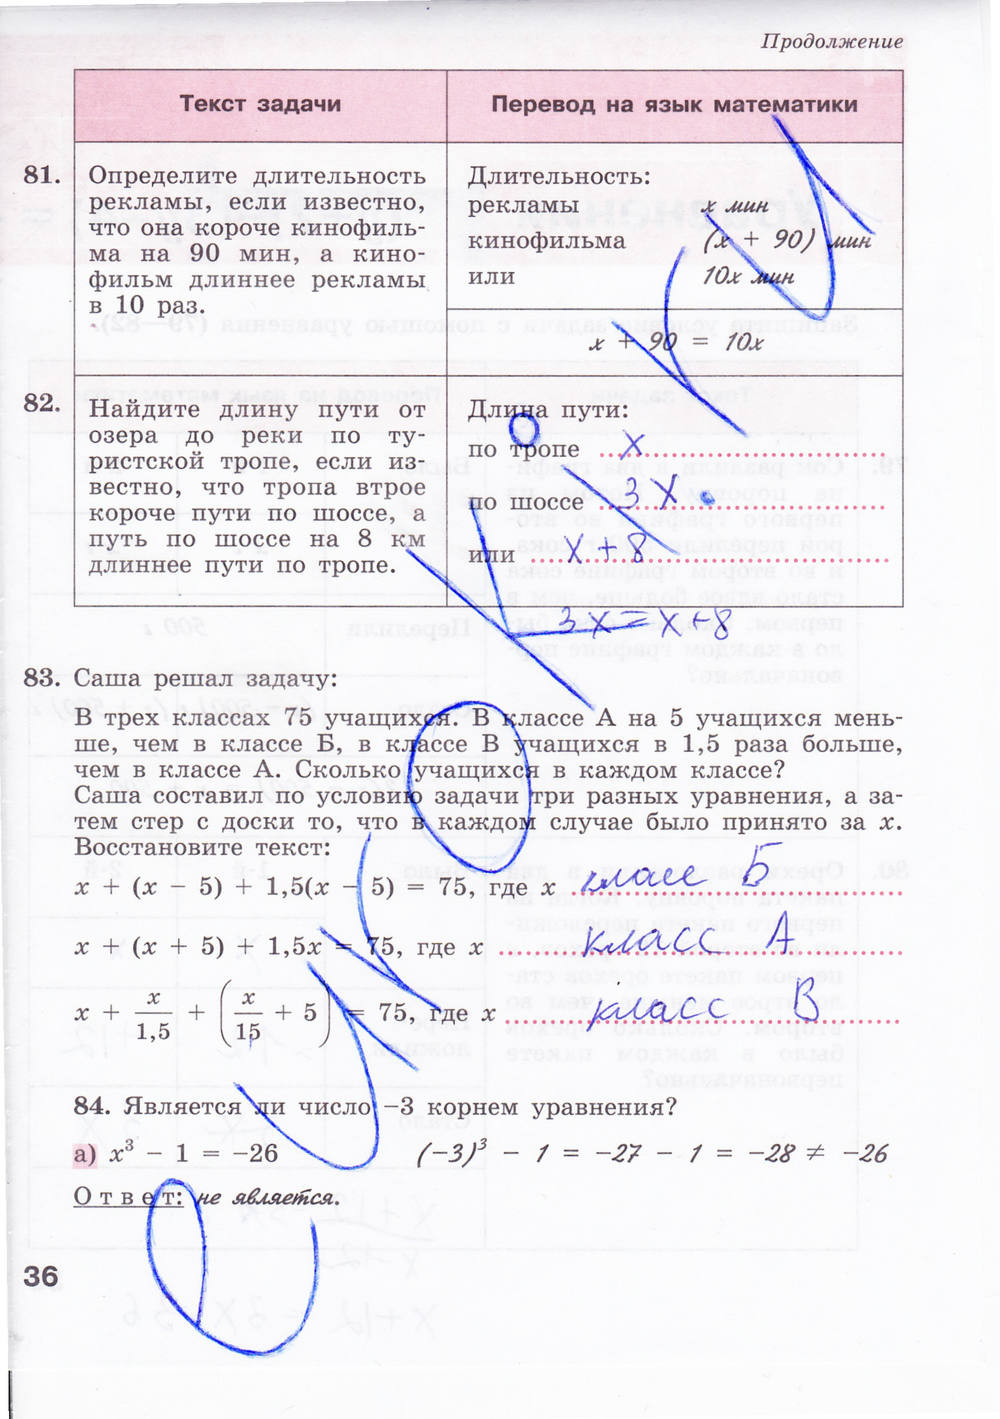 Продолжение
Текст задачи
Перевод на язык математики
81.
Определите длительность
рекламы, если известно,
что она короче кинофиль-
ма на 90 мин, а кино-
фильм длиннее рекламы
в 10 раз.
Длительность:
рекламы x мин
кинофильма (x + 90) мин
или 10x мин
x + 90 = 10x
82.
Найдите длину пути от
озера до реки по ту-
ристской тропе, если из-
вестно, что тропа втрое
короче пути по шоссе, а
путь по шоссе на 8 км
длиннее пути по тропе.
Длина пути:
по тропе x
по шоссе 3x
или x + 8
3x = x + 8
83. Саша решал задачу:
В трех классах 75 учащихся. В классе А на 5 учащихся мень-
ше, чем в классе Б, в классе В учащихся в 1,5 раза больше,
чем в классе А. Сколько учащихся в каждом классе?
Саша составил по условию задачи три разных уравнения, а за-
тем стер с доски то, что в каждом случае было принято за x.
Восстановите текст:
x + (x − 5) + 1,5(x − 5) = 75, где x класс Б
x + (x + 5) + 1,5x = 75, где x класс А
x + x/1,5 + (x/15 + 5) = 75, где x класс В
84. Является ли число −3 корнем уравнения?
а) x³ − 1 = −26 (−3)³ − 1 = −27 − 1 = −28 ≠ −26
Ответ: не является.
36